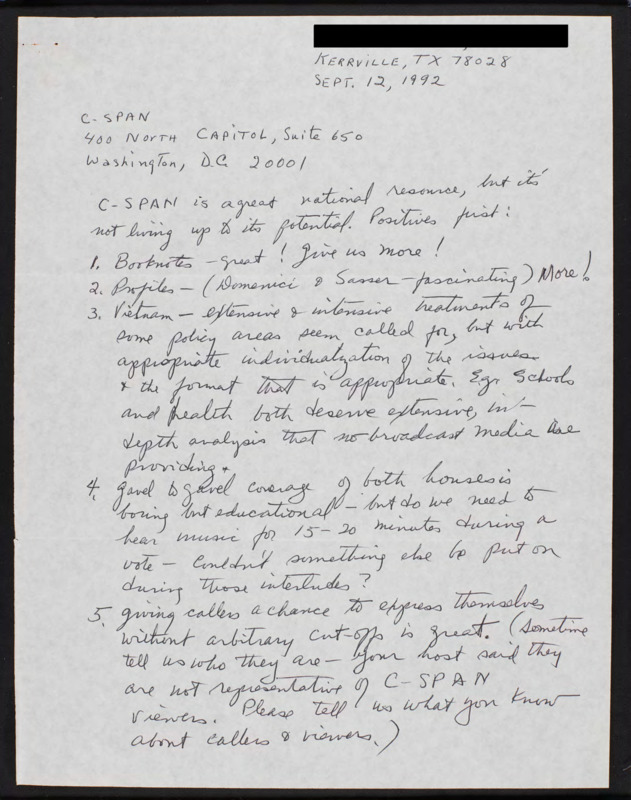 KERRVILLE, TX 78028
SEPT. 12, 1992
C-SPAN
400 NORTH CAPITOL, Suite 650
Washington, D.C. 20001
C-SPAN is a great national resource, but it's
not living up to its potential. Positives first:
1. Booknotes - great! Give us more!
2. Profiles - (Domenici & Sasser - fascinating) More!
3. Vietnam - extensive & intensive treatments of
some policy areas seem called for, but with
appropriate individualization of the issues
& the format that is appropriate. E.g. Schools
and health both deserve extensive, in-
depth analysis that no broadcast media are
providing.
4. gavel to gavel coverage of both houses is
boring but educational - but do we need to
hear music for 15-20 minutes during a
vote - couldn't something else be put on
during those interludes?
5. giving callers a chance to express themselves
without arbitrary cut-offs is great. (Sometime
tell us who they are - your host said they
are not representative of C-SPAN
viewers. Please tell us what you know
about callers & viewers.)